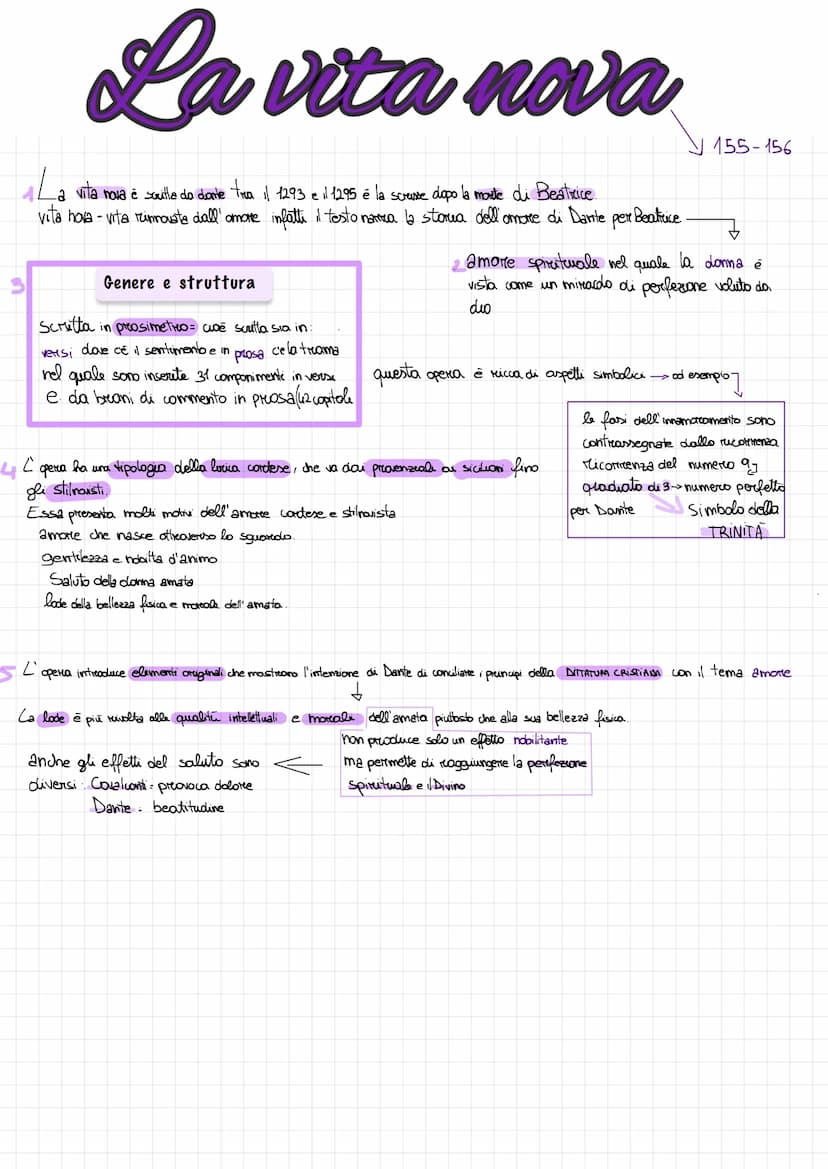 La vita nova
155-156
1 La vita nova è scritta da dante tra il 1293 e il 1295 é la scrisse dopo la morte di Beatrice.
vita nova - vita rinnovata dall'amore infatti il testo narra la storia dell'amore di Dante per Beatrice
2 amore spirituale nel quale la donna é
vista come un miracolo di perfezione voluto da
dio
3 Genere e struttura
Scritta in prosimetro= cioè scritta sia in:
versi dove c'è il sentimento e in prosa c'e la trama
nel quale sono inserite 31 componimenti in versi
e da brani di commento in prosa (42 capitoli
questa opera é ricca di aspetti simbolici → ad esempio
le fasi dell'innamoramento sono
contrassegnate dalla ricorrenza
ricorrenza del numero 9,
quadrato di 3→ numero perfetto
per Dante Simbolo della
TRINITÀ
4 L'opera ha una tipologia della lirica cortese, che va dai provenzali ai siciliani fino
gli stilnovisti.
Essa presenta molti motivi dell'amore cortese e stilnovista
amore che nasce attraverso lo sguardo.
gentilezza e nobilta d'animo
Saluto della donna amata
lode della bellezza fisica e morale dell'amata.
5 L'opera introduce elementi originali che mostrano l'intenzione di Dante di conciliare i principi della con il tema amore
La lode é più rivolta alle qualitú intelettuali e morali dell'amata piuttosto che alla sua bellezza fisica.
non produce solo un effetto nobilitante
ma permette di raggiungere la perfezione
spirituale e il Divino
anche gli effetti del saluto sono
diversi: Cavalcanti = provoca dolore
Dante = beatitudine